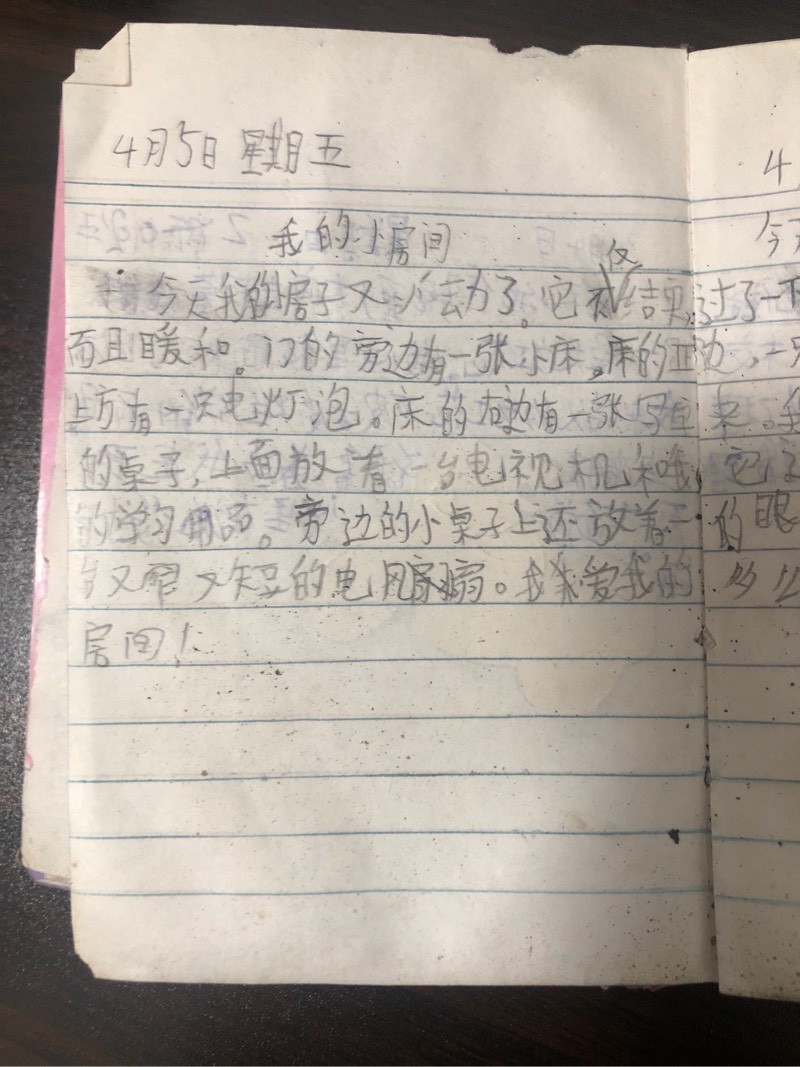 4月5日 星期五
我的小房间
今天我的房子又 了。它不仅结实,
而且暖和。门的旁边有一张小床。床的正
上方有一只电灯泡。床的右边有一张写
的桌子,上面放着一台电视机和
的学习用品。旁边的小桌子上还放着一
台又 又矮的电风扇。我爱我的
房间!
4
今
过了一
一只
来。我
它
的眼
么